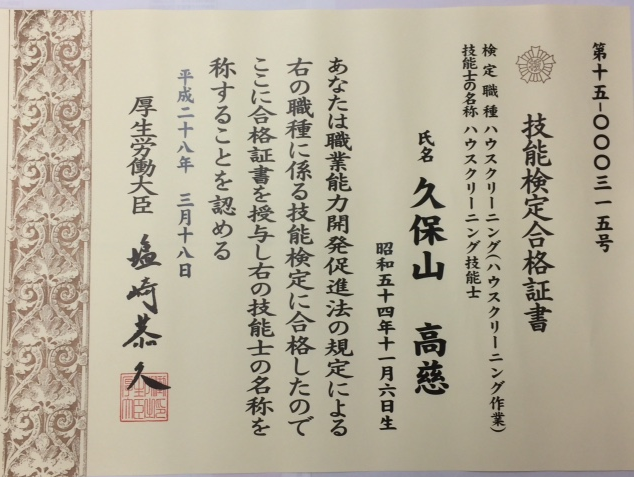 第十五-〇〇〇三一五号
技能検定合格証書
検定職種 ハウスクリーニング(ハウスクリーニング作業)
技能士の名称 ハウスクリーニング技能士
氏名 久保山 高慈
昭和五十四年十一月六日生
あなたは職業能力開発促進法の規定による
右の職種に係る技能検定に合格したので
ここに合格証書を授与し右の技能士の名称を
称することを認める
平成二十八年 三月十八日
厚生労働大臣 塩崎恭久